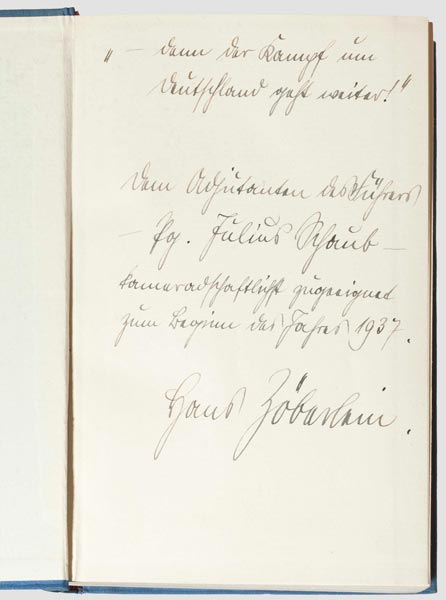 „ – denn der Kampf um
Deutschland geht weiter!"
Dem Adjutanten des Führers
– Pg. Julius Schaub –
kameradschaftlichst zugeeignet
zum Beginn des Jahres 1937.
Hans Zöberlein.